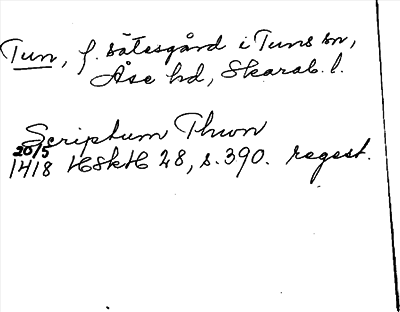 Tun, f. sätesgård i Tuns sn,
Åse hd, Skarab. l.
Scriptum Thwn
20/5
1418 HSkH 28, s. 390. regest.